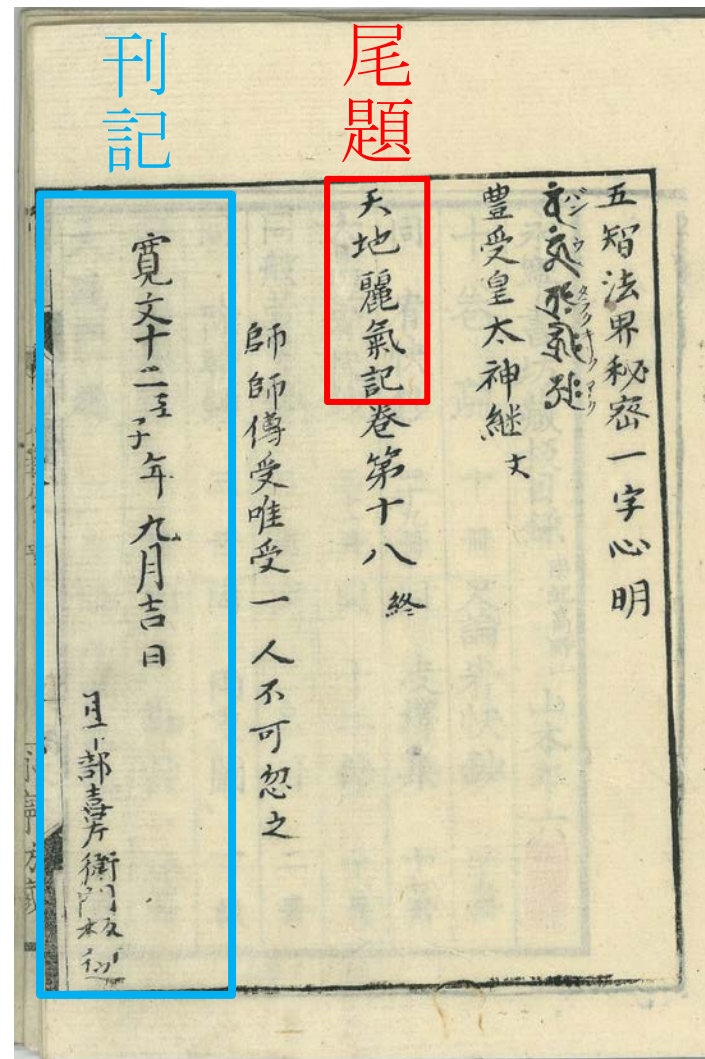 尾題
刊記
五智法界秘密一字心明
バン ウン タラク キリク アク
豊受皇太神継文
天地麗氣記巻第十八終
師師傳受唯受一人不可忽之
寛文十二壬子年九月吉日
部喜左衛門板